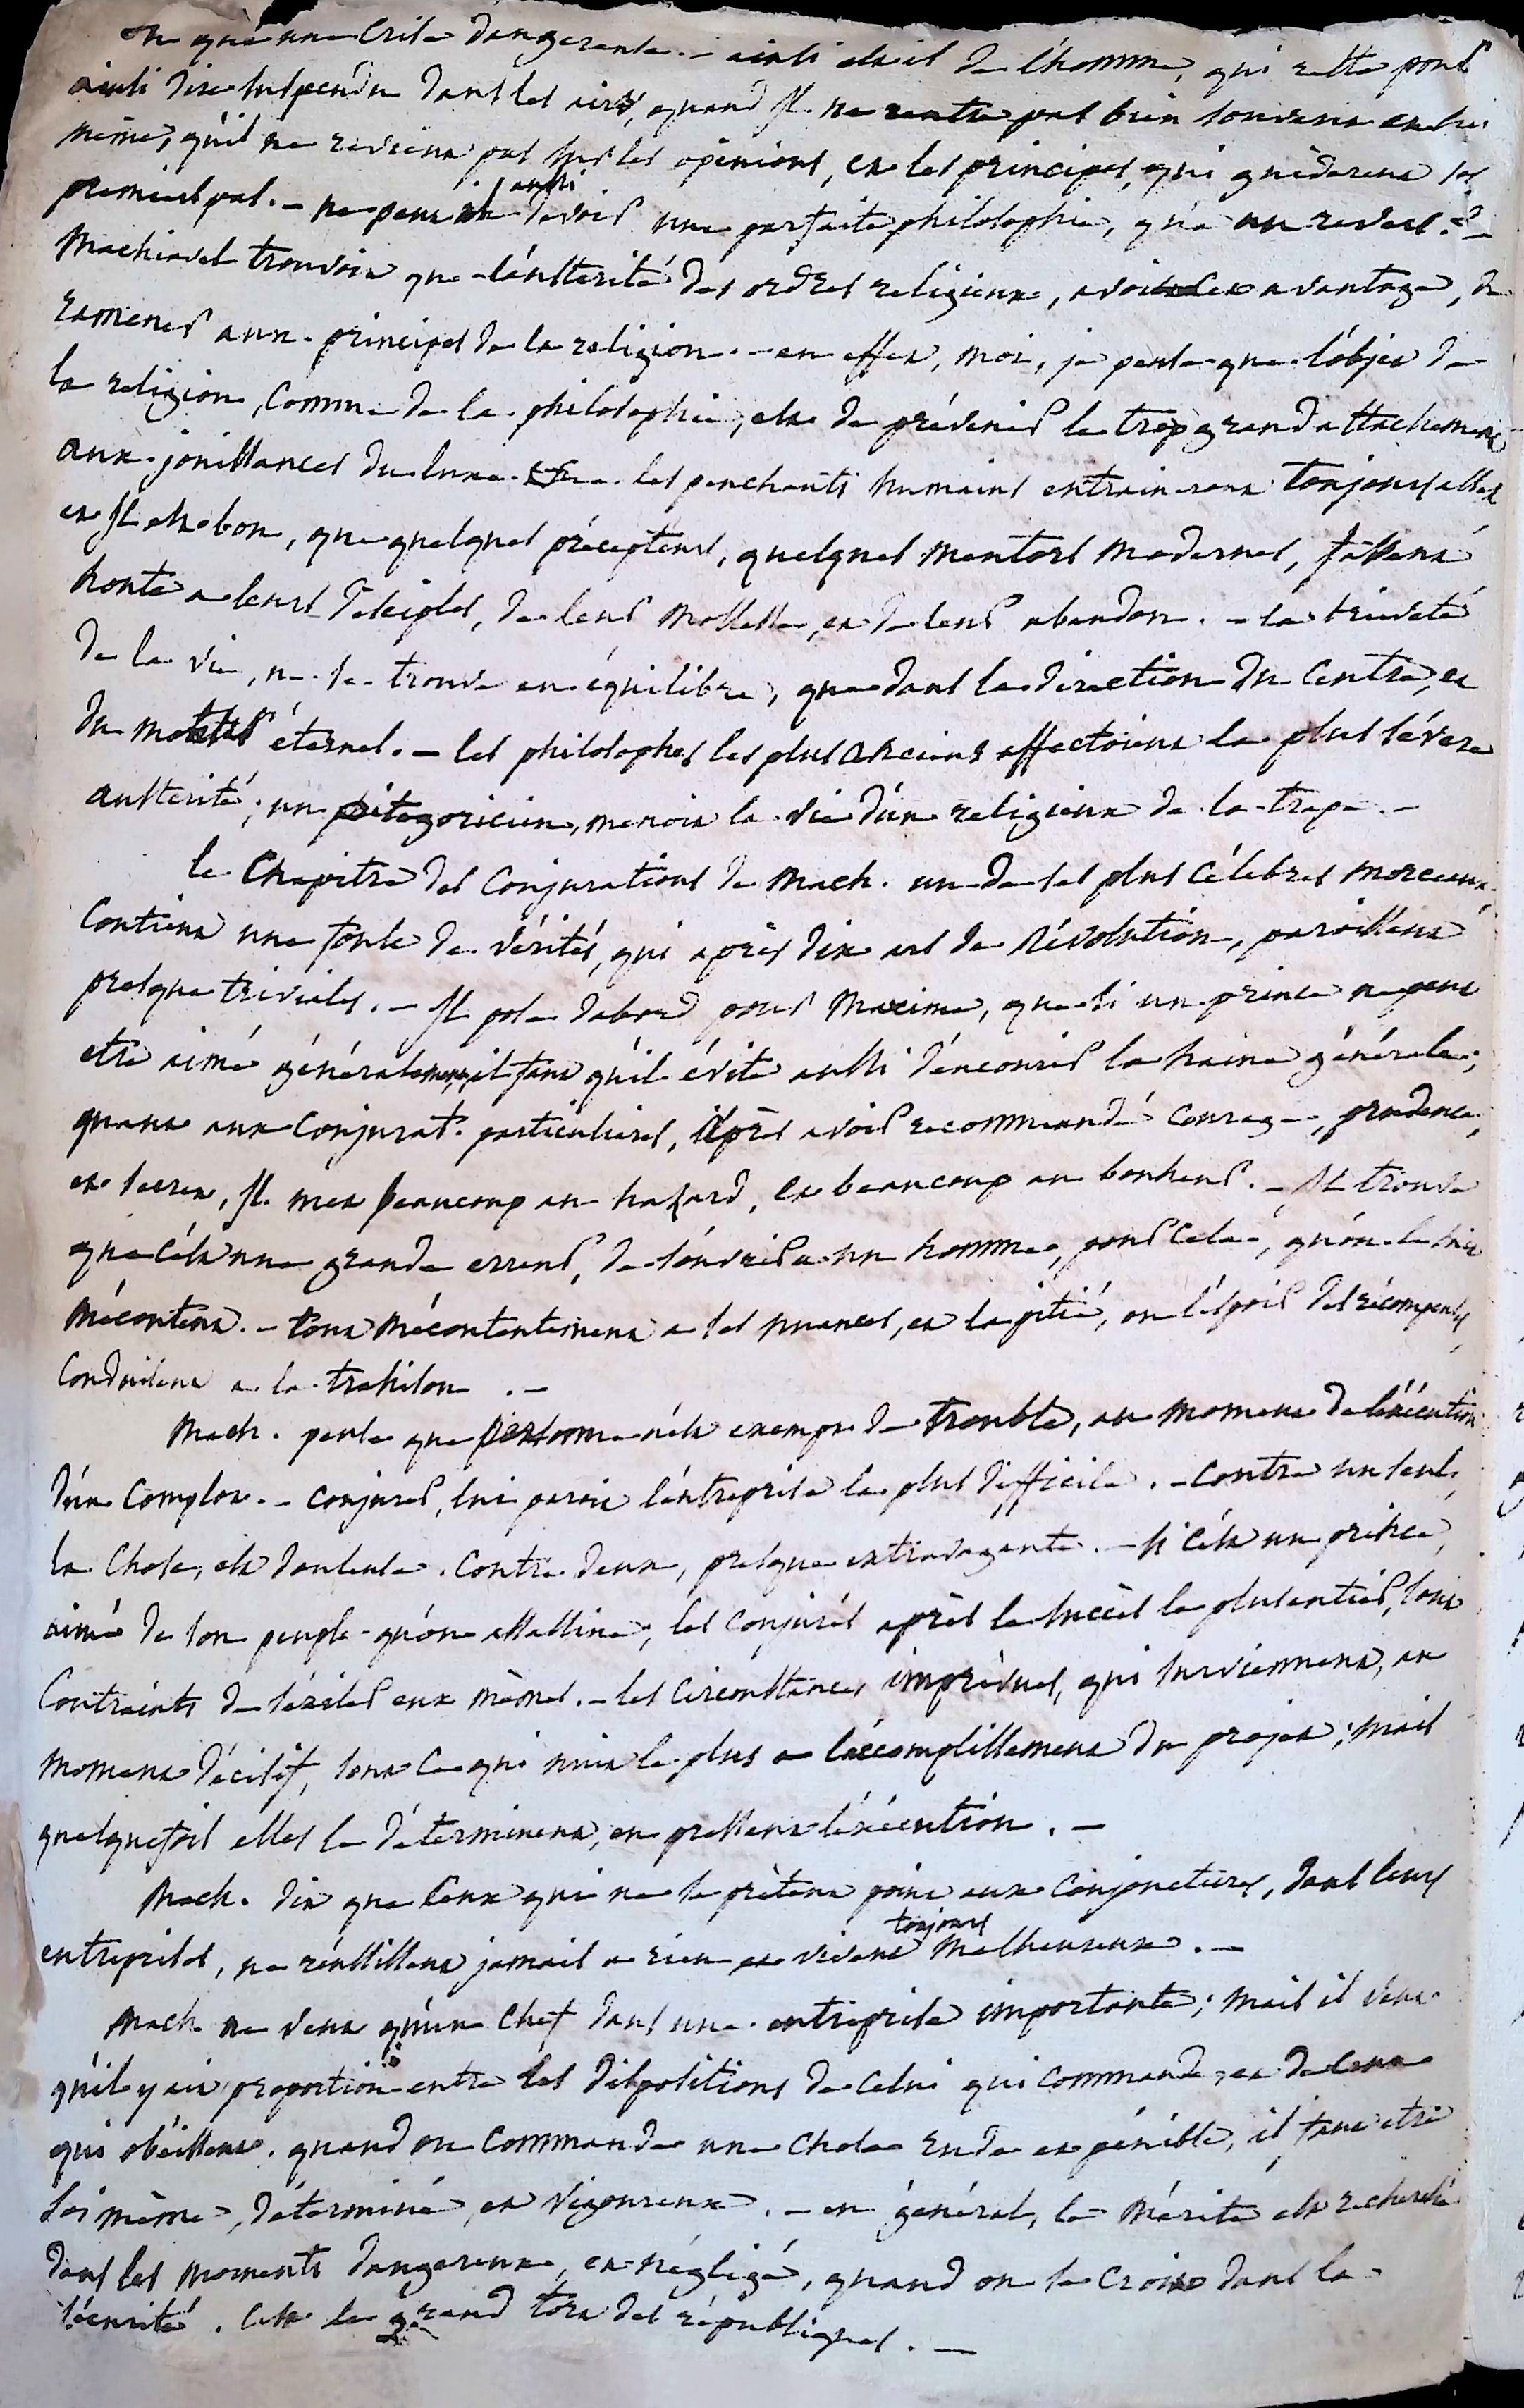 on qu'a une crise dangereuse. – ainsi est il de l'homme, qui reste pour
ainsi dire suspendu dans les airs, quand il ne rentre pas bien souvent en lui
même, qu'il ne revient pas sur les opinions, et les principes, qui guiderent ses
premiers pas. – ne peut on aussi devoir une parfaite philosophie, qu'a un revers ? –
Machiavel trouvoit que l'austerité des ordres religieux, avoit cet avantage, de
ramener aux principes de la religion. – en effet, moi, je pense que l'objet de
la religion, comme de la philosophie, est de prévenir le trop grand attachement
aux jouissances du luxe. les penchants humains entraineront toujours assez
et il est bon, que quelques précepteurs, quelques mentors modernes, fassent
honte a leurs disciples, de leur mollesse, et de leur abandon. – la brieveté
de la vie, ne se trouve en équilibre, que dans la direction du centre, et
du moteur éternel. – les philosophes les plus anciens affectoient la plus sévere
austerité ; un pitagoricien, menoit la vie d'un religieux de la trape. –
le Chapitre des Conjurations de Mach. un de ses plus célebres morceaux,
contient une foule de vérités, qui après dix ans de révolution, paroissent
presque triviales. – Il pose dabord pour maxime, que si un prince ne peut
etre aimé généralement, il faut qu'il évite aussi d'encourir la haine générale ;
quant aux conjurat. particulieres, après avoir recommandé courage, prudence,
et secret, Il met beaucoup au hazard, et beaucoup au bonheur. – Il trouve
que c'est une grande erreur, de s'ouvrir a un homme, pour cela, qu'on le sait
mécontent. – tout mécontentement a ses nuances, et la pitié, ou l'espoir des récompenses
conduisent a la trahison. –
Mach. pense que personne n'est exempt de trouble, au moment de l'éxécution
d'un complot. – conjurer, lui paroit l'entreprise la plus difficile. – contre un seul,
la chose, est douteuse. contre deux, presque extravagante. – si c'est un prince,
aimé de son peuple qu'on assassine, les conjurés après le succès le plus entier, sont
contraints de s'exiler eux mêmes. – les circonstances imprévues, qui surviennent, au
moment décisif, sont ce qui nuit le plus a l'accomplissement du projet ; mais
quelquefois elles le déterminent, en pressent l'éxécution. –
Mach. dit que ceux qui ne se prètent point aux conjonctures, dans leurs
entreprises, ne réussissent jamais a rien et vivent toujours malheureux. –
Mach. ne veut qu'un chef dans une entreprise importante ; mais il veut
qu'il y ait proportion entre les dispositions de celui qui commande, et de ceux
qui obéissent. quand on commande une chose rude et pénible, il faut etre
soi même, déterminé, et vigoureux. – en général, le mérite est recherché
dans les moments dangereux, et négligé, quand on se croit dans la
sécurité. C'est le grand tort des républiques. –